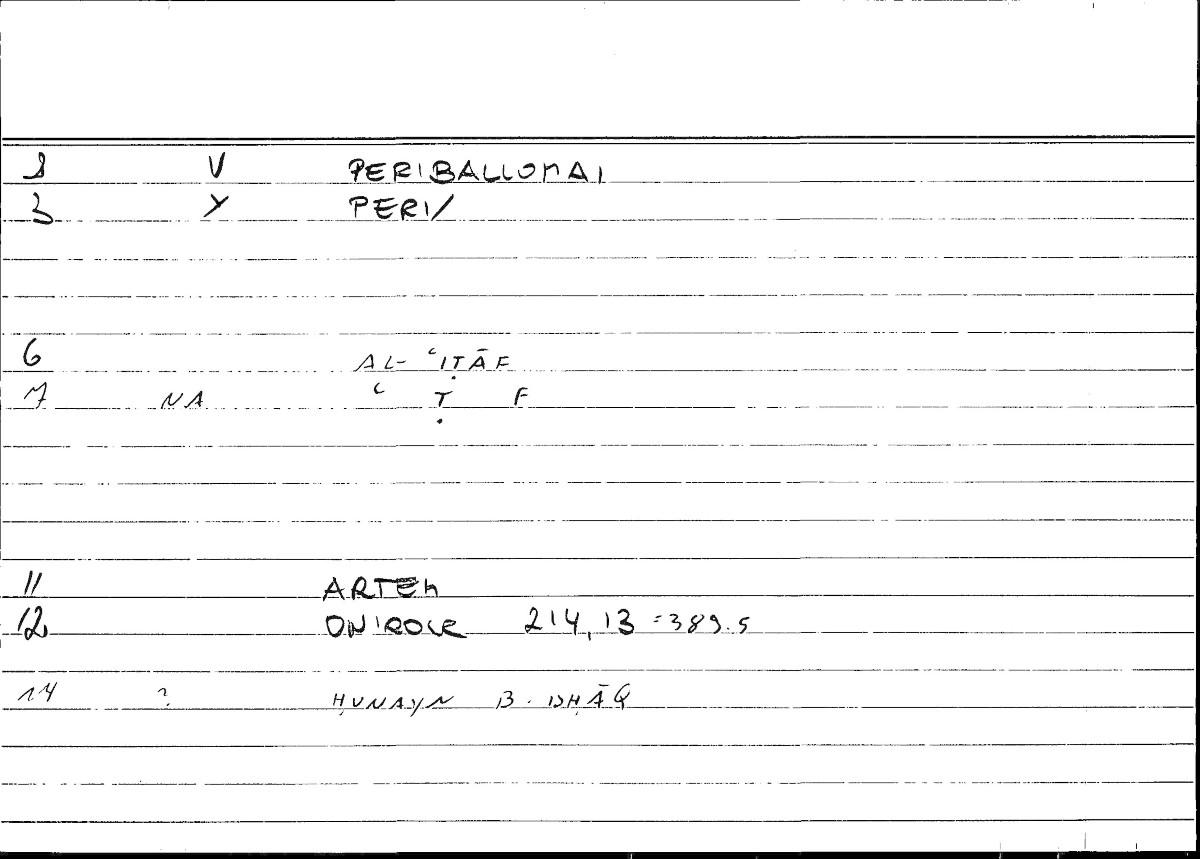 1 V PERIBALLOMAI
3 Y PERI/
6 AL-ʿIṬĀF
7 NA ʿ Ṭ F
11 ARTEM
12 ONIROCR 214, 13 = 389.5
14 ? ḤUNAYN B. ISḤĀQ